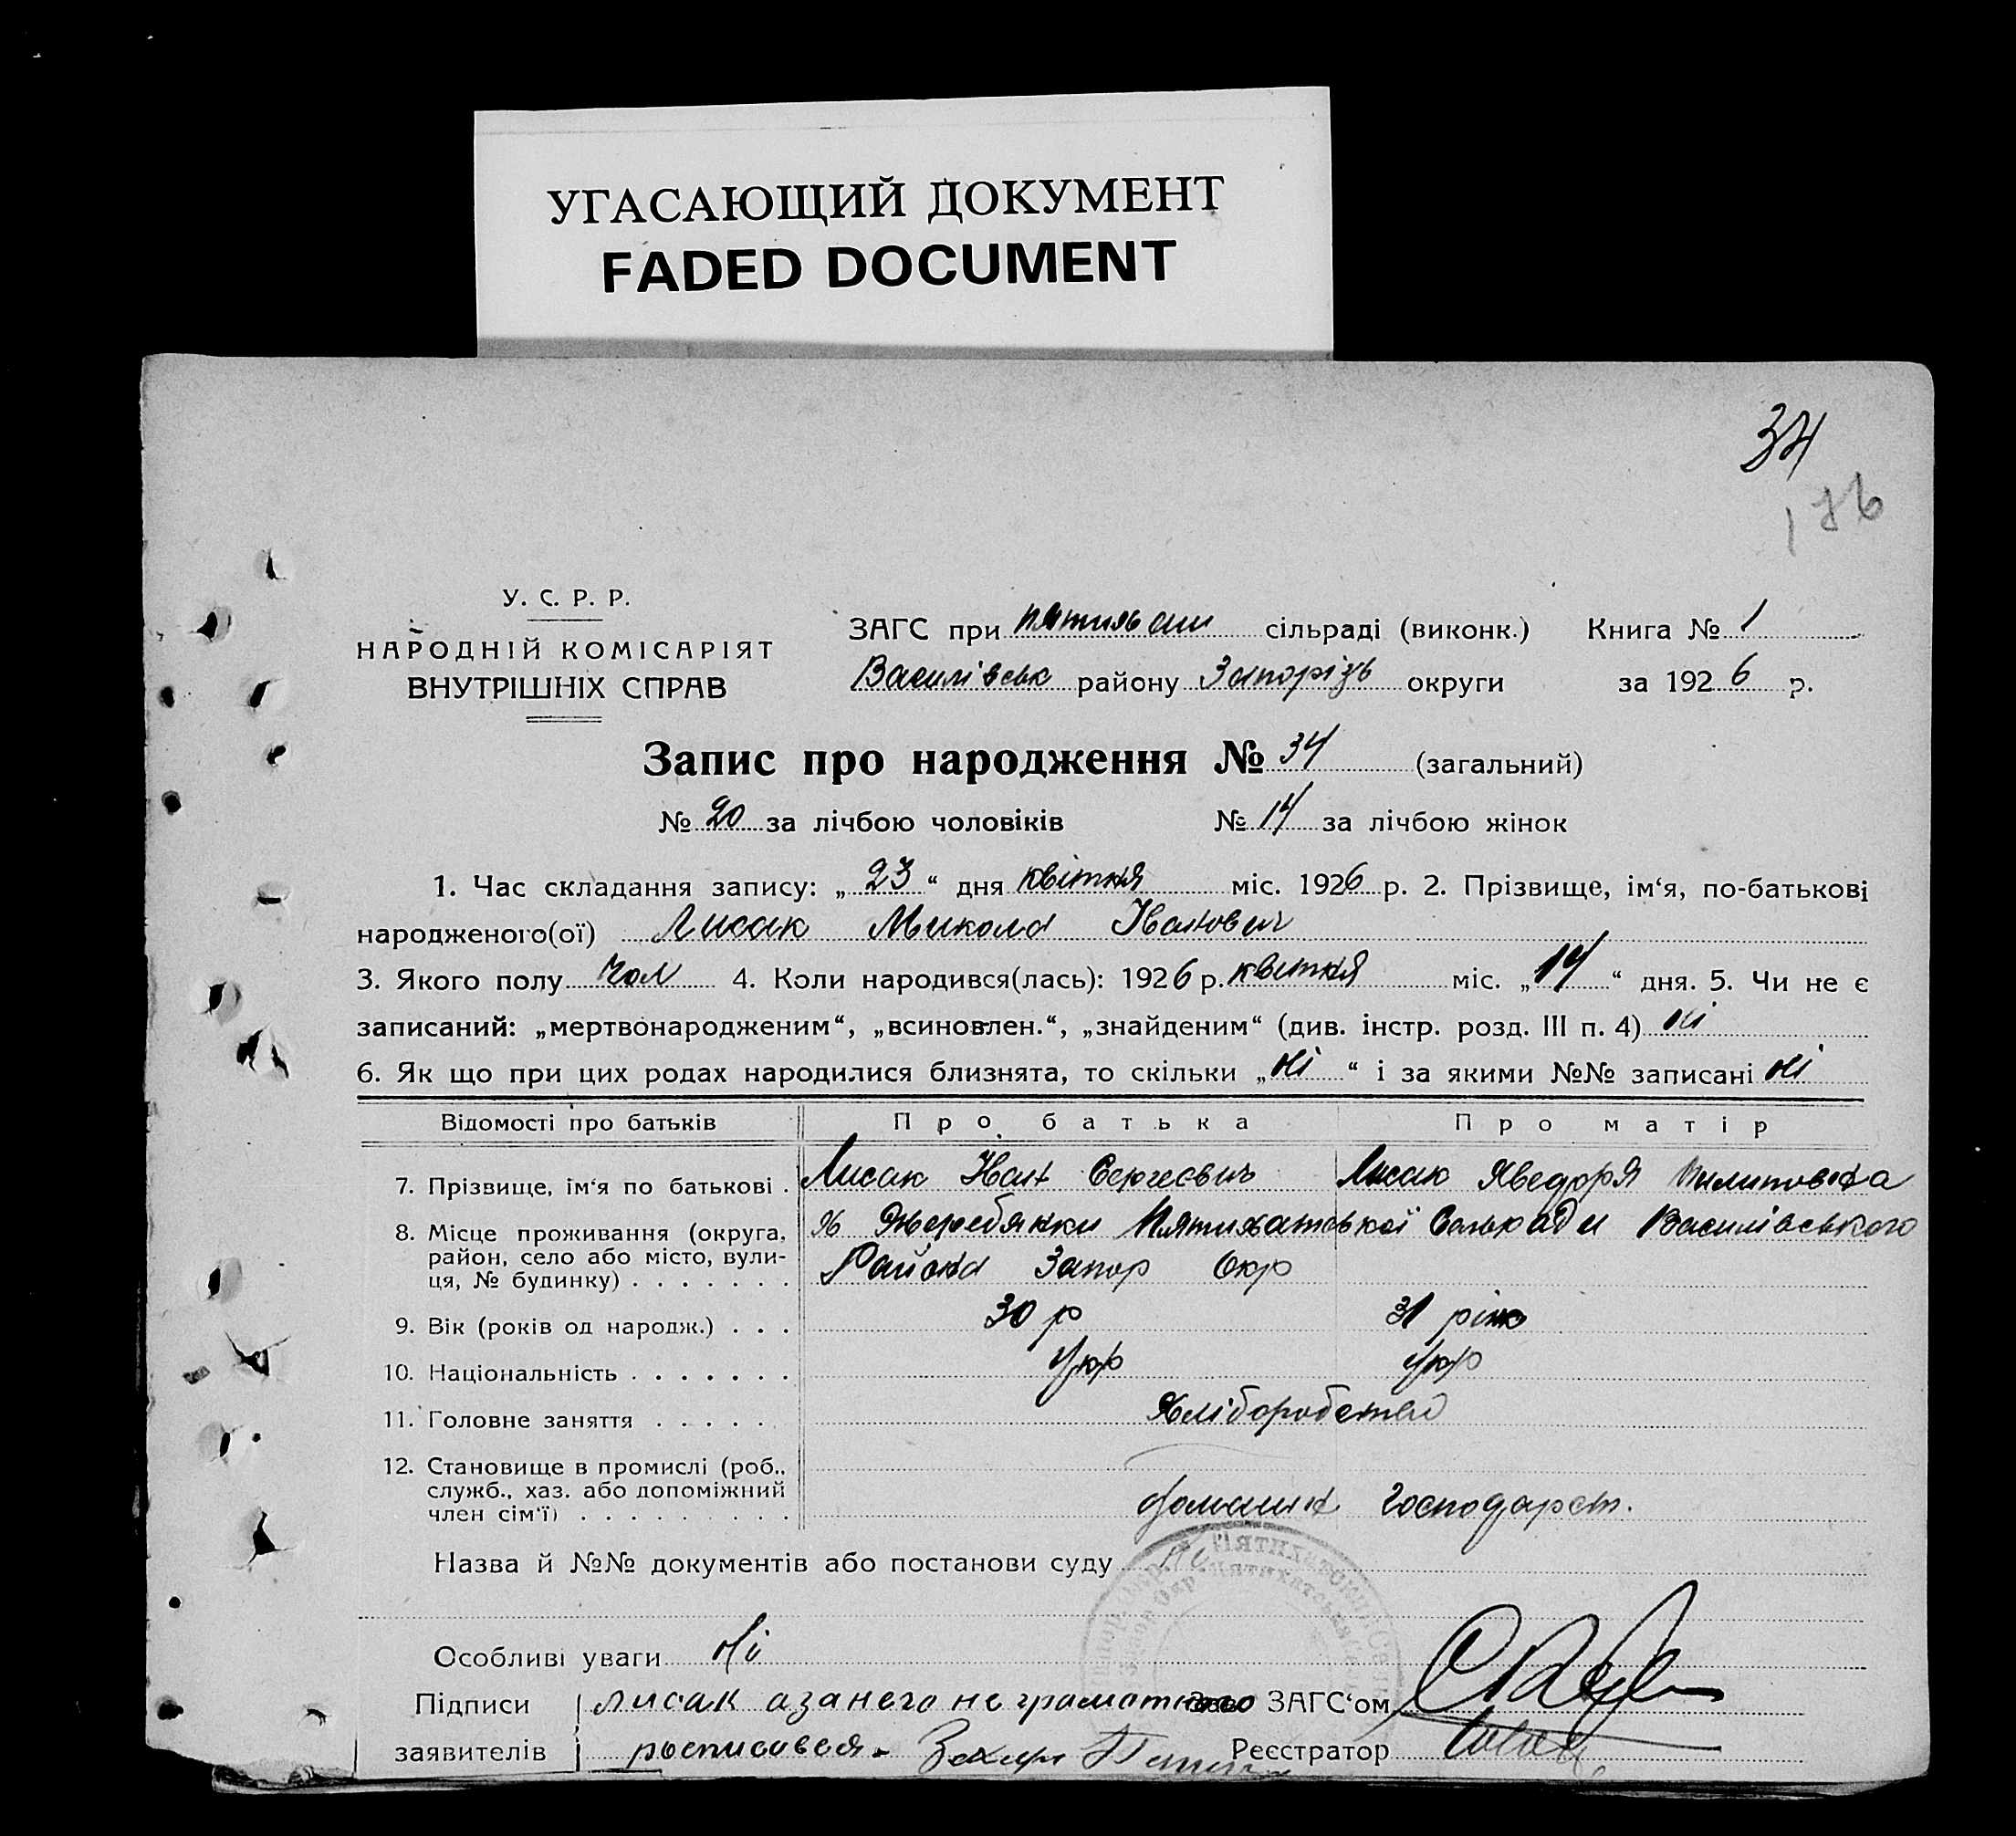 УГАСАЮЩИЙ ДОКУМЕНТ
FADED DOCUMENT
34
176
У. С. Р. Р.
НАРОДНІЙ КОМІСАРІЯТ
ВНУТРІШНІХ СПРАВ
ЗАГС при сільраді (виконк.) Книга № 1
Василівськ району Запорізь округи за 1926 р.
Запис про народження № 34 (загальний)
№ 20 за лічбою чоловіків № 14 за лічбою жінок
1. Час складання запису: „23“ дня квітня міс. 1926 р. 2. Прізвище, ім‘я, по-батькові
народженого(ої) Лисак Микола Іванович
3. Якого полу чол 4. Коли народився(лась): 1926 р. квитня міс. „14“ дня. 5. Чи не є
записаний: „мертвонародженим“, „всиновлен.“, „знайденим“ (див. інстр. розд. III п. 4) ні
6. Як що при цих родах народилися близнята, то скільки „ні“ і за якими №№ записані ні
Відомості про батьків Про батька Про матір
7. Прізвище, ім‘я по батькові . Лисак Іван Сергеєвич Лисак Явдоря Пилиповна
8. Місце проживання (округа, х Жеребянки Пятихатської Сільради Василівського
район, село або місто, вули- Района Запор Окр
ця, № будинку) . . . . . . .
9. Вік (років од народж.) . . . 30 р 31 рік
10. Національність . . . . . . . Укр Укр
11. Головне заняття . . . . . Хліборобство
12. Становище в промислі (роб.,
служб., хаз. або допоміжний
член сім‘ї) . . . . . . . . . домашн господарст.
Назва й №№ документів або постанови суду ні
Особливі уваги ні
Підписи лисак азанего не грамотного Завв ЗАГС‘ом
заявителів росписався. Захар Реєстратор